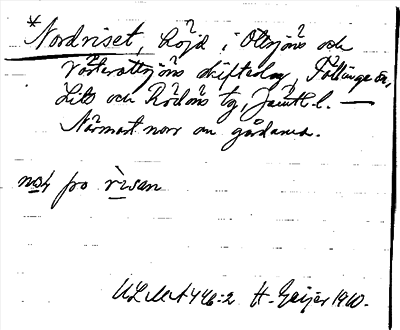 *Nordriset, höjd i Ottsjöns och
Västerottsjöns skifteslag, Föllinge sn,
Lits och Rödöns tg, Jämtl. l. —
Närmast norr om gårdarna.
not pro risen
ULMA 446:2 H. Geijer 1910.